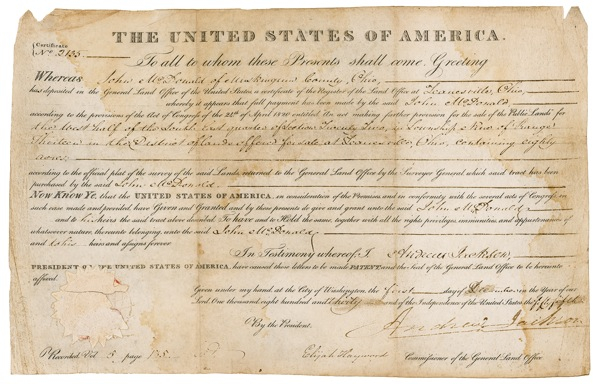 THE UNITED STATES OF AMERICA.
Certificate
No. 2135
To all to whom these Presents shall come, Greeting
Whereas John McDonald of Muskingum County, Ohio,
has deposited in the General Land Office of the United States a certificate of the Register of the Land Office at Zanesville, Ohio,
whereby it appears that full payment has been made by the said John McDonald
according to the provisions of the Act of Congress of the 24th of April 1820 entitled An act making further provision for the sale of the Public Lands for
the West half of the South east quarter of section Twenty Two, in Township of Range
Thirteen in the District of lands offered for sale at Zanesville, Ohio, containing eighty
acres,
according to the official plat of the survey of the said Lands returned to the General Land Office by the Surveyor General which said tract has been
purchased by the said John McDonald.
NOW KNOW YE, that the UNITED STATES OF AMERICA, in consideration of the Premises and in conformity with the several acts of Congress in
such case made and provided, have Given and Granted and by these presents do give and grant unto the said John McDonald
and to his heirs the said tract above described. To have and to Hold the same, together with all the rights privileges, immunities, and appurtenances of
whatsoever nature, thereunto belonging, unto the said John McDonald
and to his heirs and assigns forever
In Testimony whereof I, Andrew Jackson,
PRESIDENT OF THE UNITED STATES OF AMERICA, have caused these letters to be made PATENT and the Seal of the General Land Office to be hereunto
affixed.
Given under my hand at the City of Washington, the first day of December in the Year of our
Lord One thousand eight hundred and thirty and of the Independence of the United States the fifty fifth
Andrew Jackson
By the President.
Recorded Vol 5, page 135
Elijah Hayward Commissioner of the General Land Office